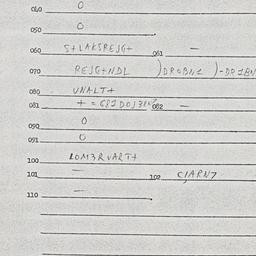 040 0
050 0
060 S+LAKSREJG+ 061 —
070 REJG+NDL )DROBN1 )-DRIBN
080 UNALT+
081 082 —
090 0
091 0
100 LOM3RUART+
101 — 102 CIARN7
110 —